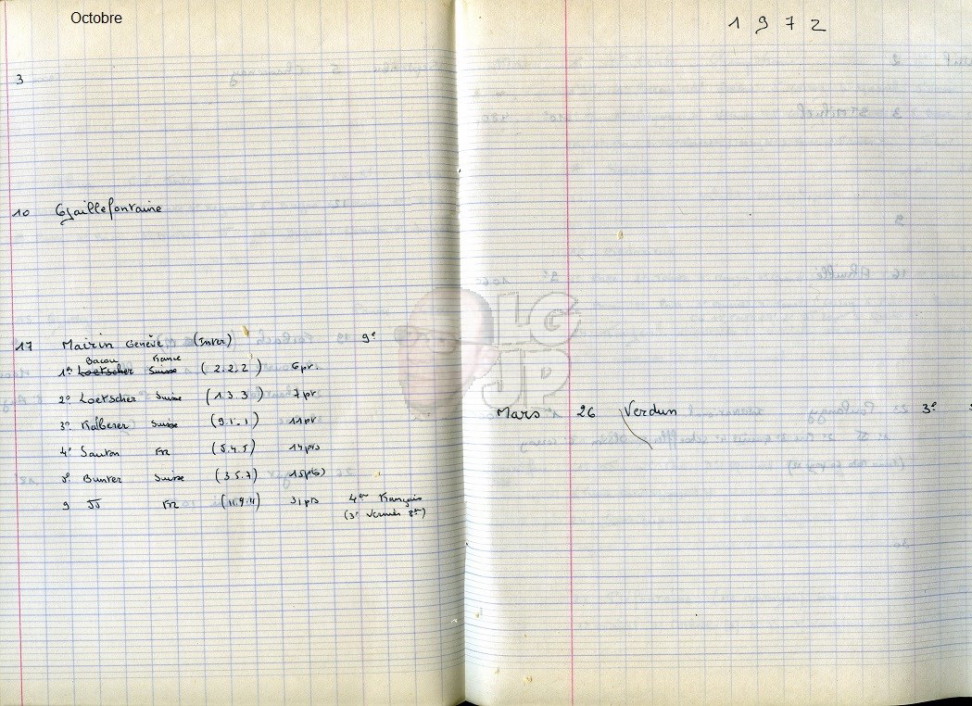 Octobre
3
10 Gaillefontaine
17 Mairin Genève (Inter) 9e
Bacou France
1er Loetscher Suisse (2.2.2) 6 pts
2e Loetscher Suisse (1.3.3) 7 pts
3e Kalberer Suisse (9.1.1) 11 pts
4e Sauton FR (5.4.5) 14 pts
5e Bunter Suisse (3.5.7) 15 pts
9 JJ FR (11.9.11) 31 pts 4ème Français
(3e Vermeil
1972
Mars 26 Verdun 3e
LGJP